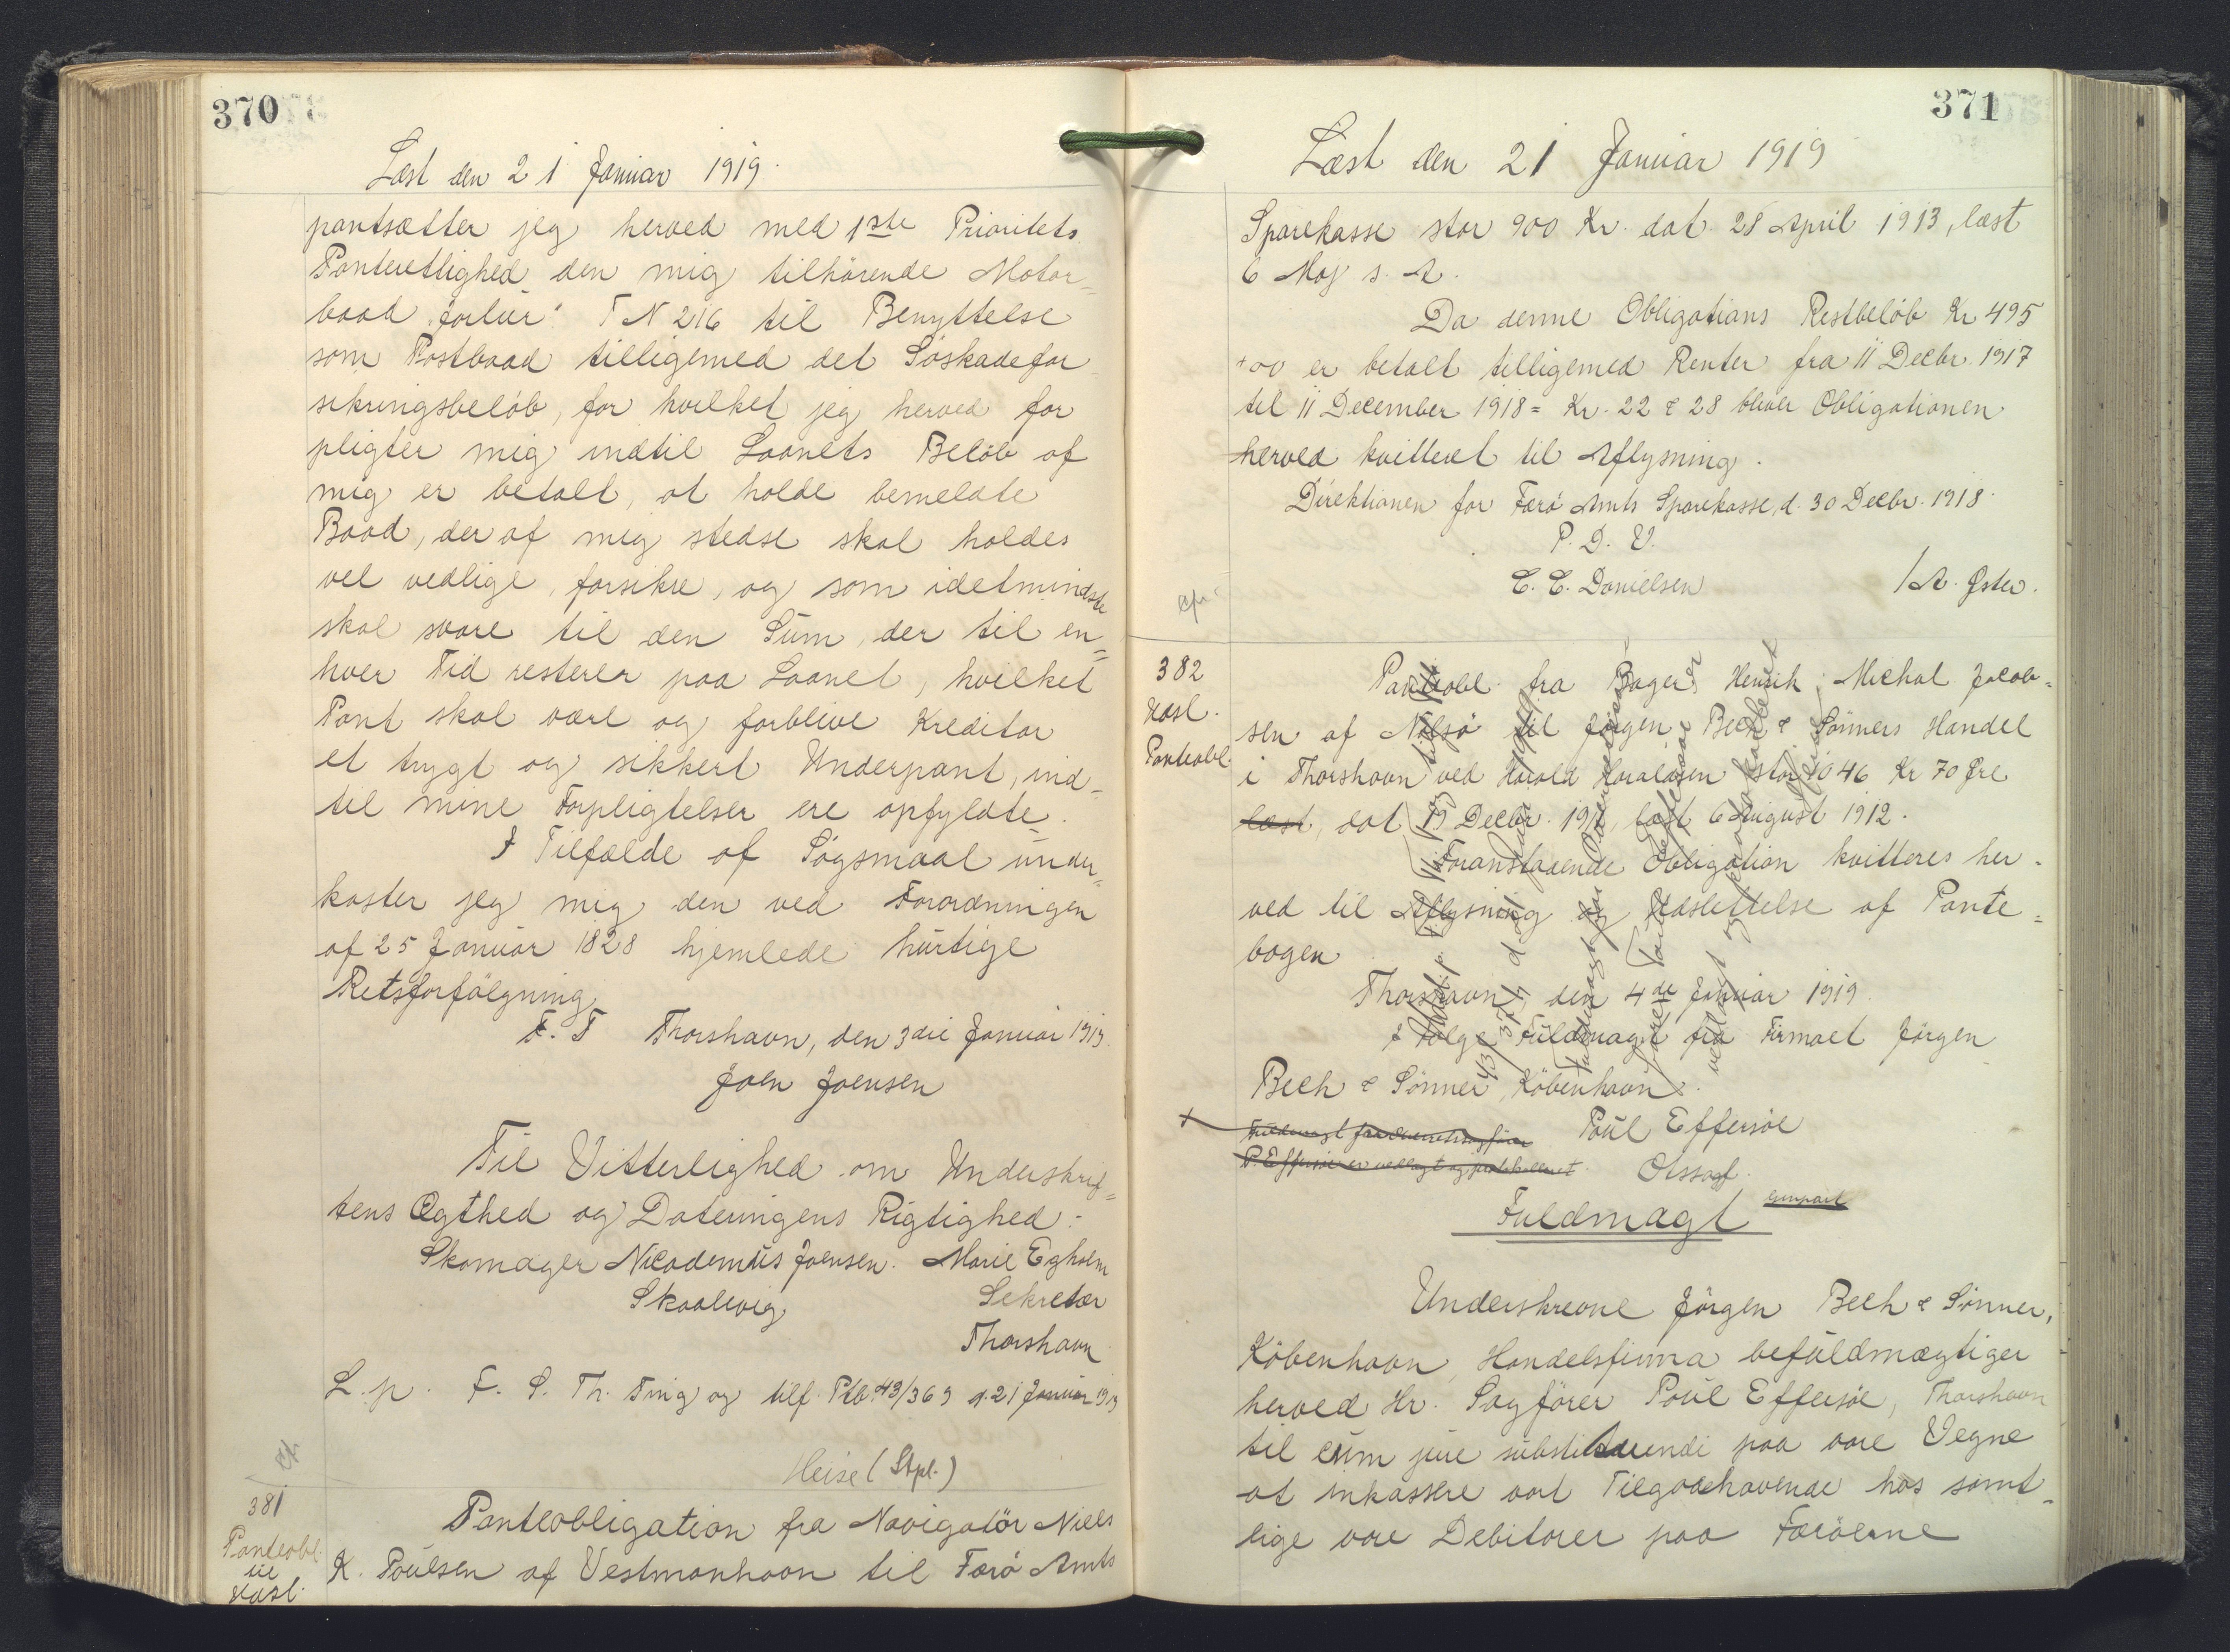 370
Læst den 21 Januar 1919.
pantsætter jeg herved med 1ste Prioritets
Panterettighed den mig tilhörende Motor=
baad "Jorlur" TN 216 til Benyttelse
som Postbaad tilligemed det Söskadefor
sikringsbelöb, for hvilket jeg herved for
pligter mig indtil Laanets Belöb af
mig er betalt, at holde bemeldte
Baad, der af mig stedse skal holdes
vel vedlige, forsikre, og som idetmindste
skal svare til den Sum, der til en=
hver Tid resterer paa Laanet, hvilket
Pant skal være og forblive Kreditor
et trygt og sikkert Underpant, ind=
til mine Forpligtelser ere opfyldte.
I Tilfælde af Sögsmaal under=
kaster jeg mig den ved Forordningen
af 25 Januar 1828 hjemlede hurtige
Retsforfölgning
F. T Thorshavn, den 3die Januar 1919.
Joen Joensen
Til Vitterlighed om Underskrif=
tens Ægthed og Dateringens Rigtighed:
Skomager Nicodemus Joensen. Marie Egholm
Skaalevig Sekretær
Thorshavn
L. p. F. S. Th. Ting og tilf. Ptb. 43/369 d. 21 Januar 1919
Heise (Stpl.)
381
Panteobl.
til
Udsl.
Panteobligation fra Navigatör Niels
K. Poulsen af Vestmanhavn til Færö Amts
371
Læst den 21 Januar 1919
Sparekasse stor 900 Kr. dat. 28 April 1913, læst
6 Maj s. A.
Da denne Obligations Restbelöb Kr 495
+00 er betalt tilligemed Renter fra 11 Decbr. 1917
til 11 December 1918 = Kr. 22 & 28 bliver Obligationen
herved kvitteret til Aflysning.
Direktionen for Færö Amts Sparekasse, d. 30 Decbr. 1918.
P. D. V.
C. C. Danielsen / A. Øster.
382
Udsl.
Panteobl.
Panteobl. fra Bager Henrik Michal Jacob=
sen af Nolsö til Jörgen Bech & Sönners Handel
i Thorshavn ved Harald Haraldsen stor 1046 Kr 70 Øre
læst, dat 19 Decbr. 1911, læst 6 August 1912.
Foranstaaende Obligation kvitteres her=
ved til Aflysning og Udslettelse af Pante=
bogen
Thorshavn, den 4de Januar 1919.
I Fölge Fuldmagt fra Firmaet Jörgen
Bech & Sönner, Köbenhavn.
Poul Effersöe
Fuldmagt fra Overretssagförer
P. Effersöe er vedlagt og protokolleret.
Fuldmagt
Genpart
Underskrevne Jörgen Bech & Sönner,
Köbenhavn, Handelsfirma befuldmægtiger
herved Hr. Sagförer Poul Effersöe, Thorshavn
til cum jure substituendi paa vore Vegne
at inkassere vort Tilgodehavende hos samt=
lige vore Debitorer paa Færöerne